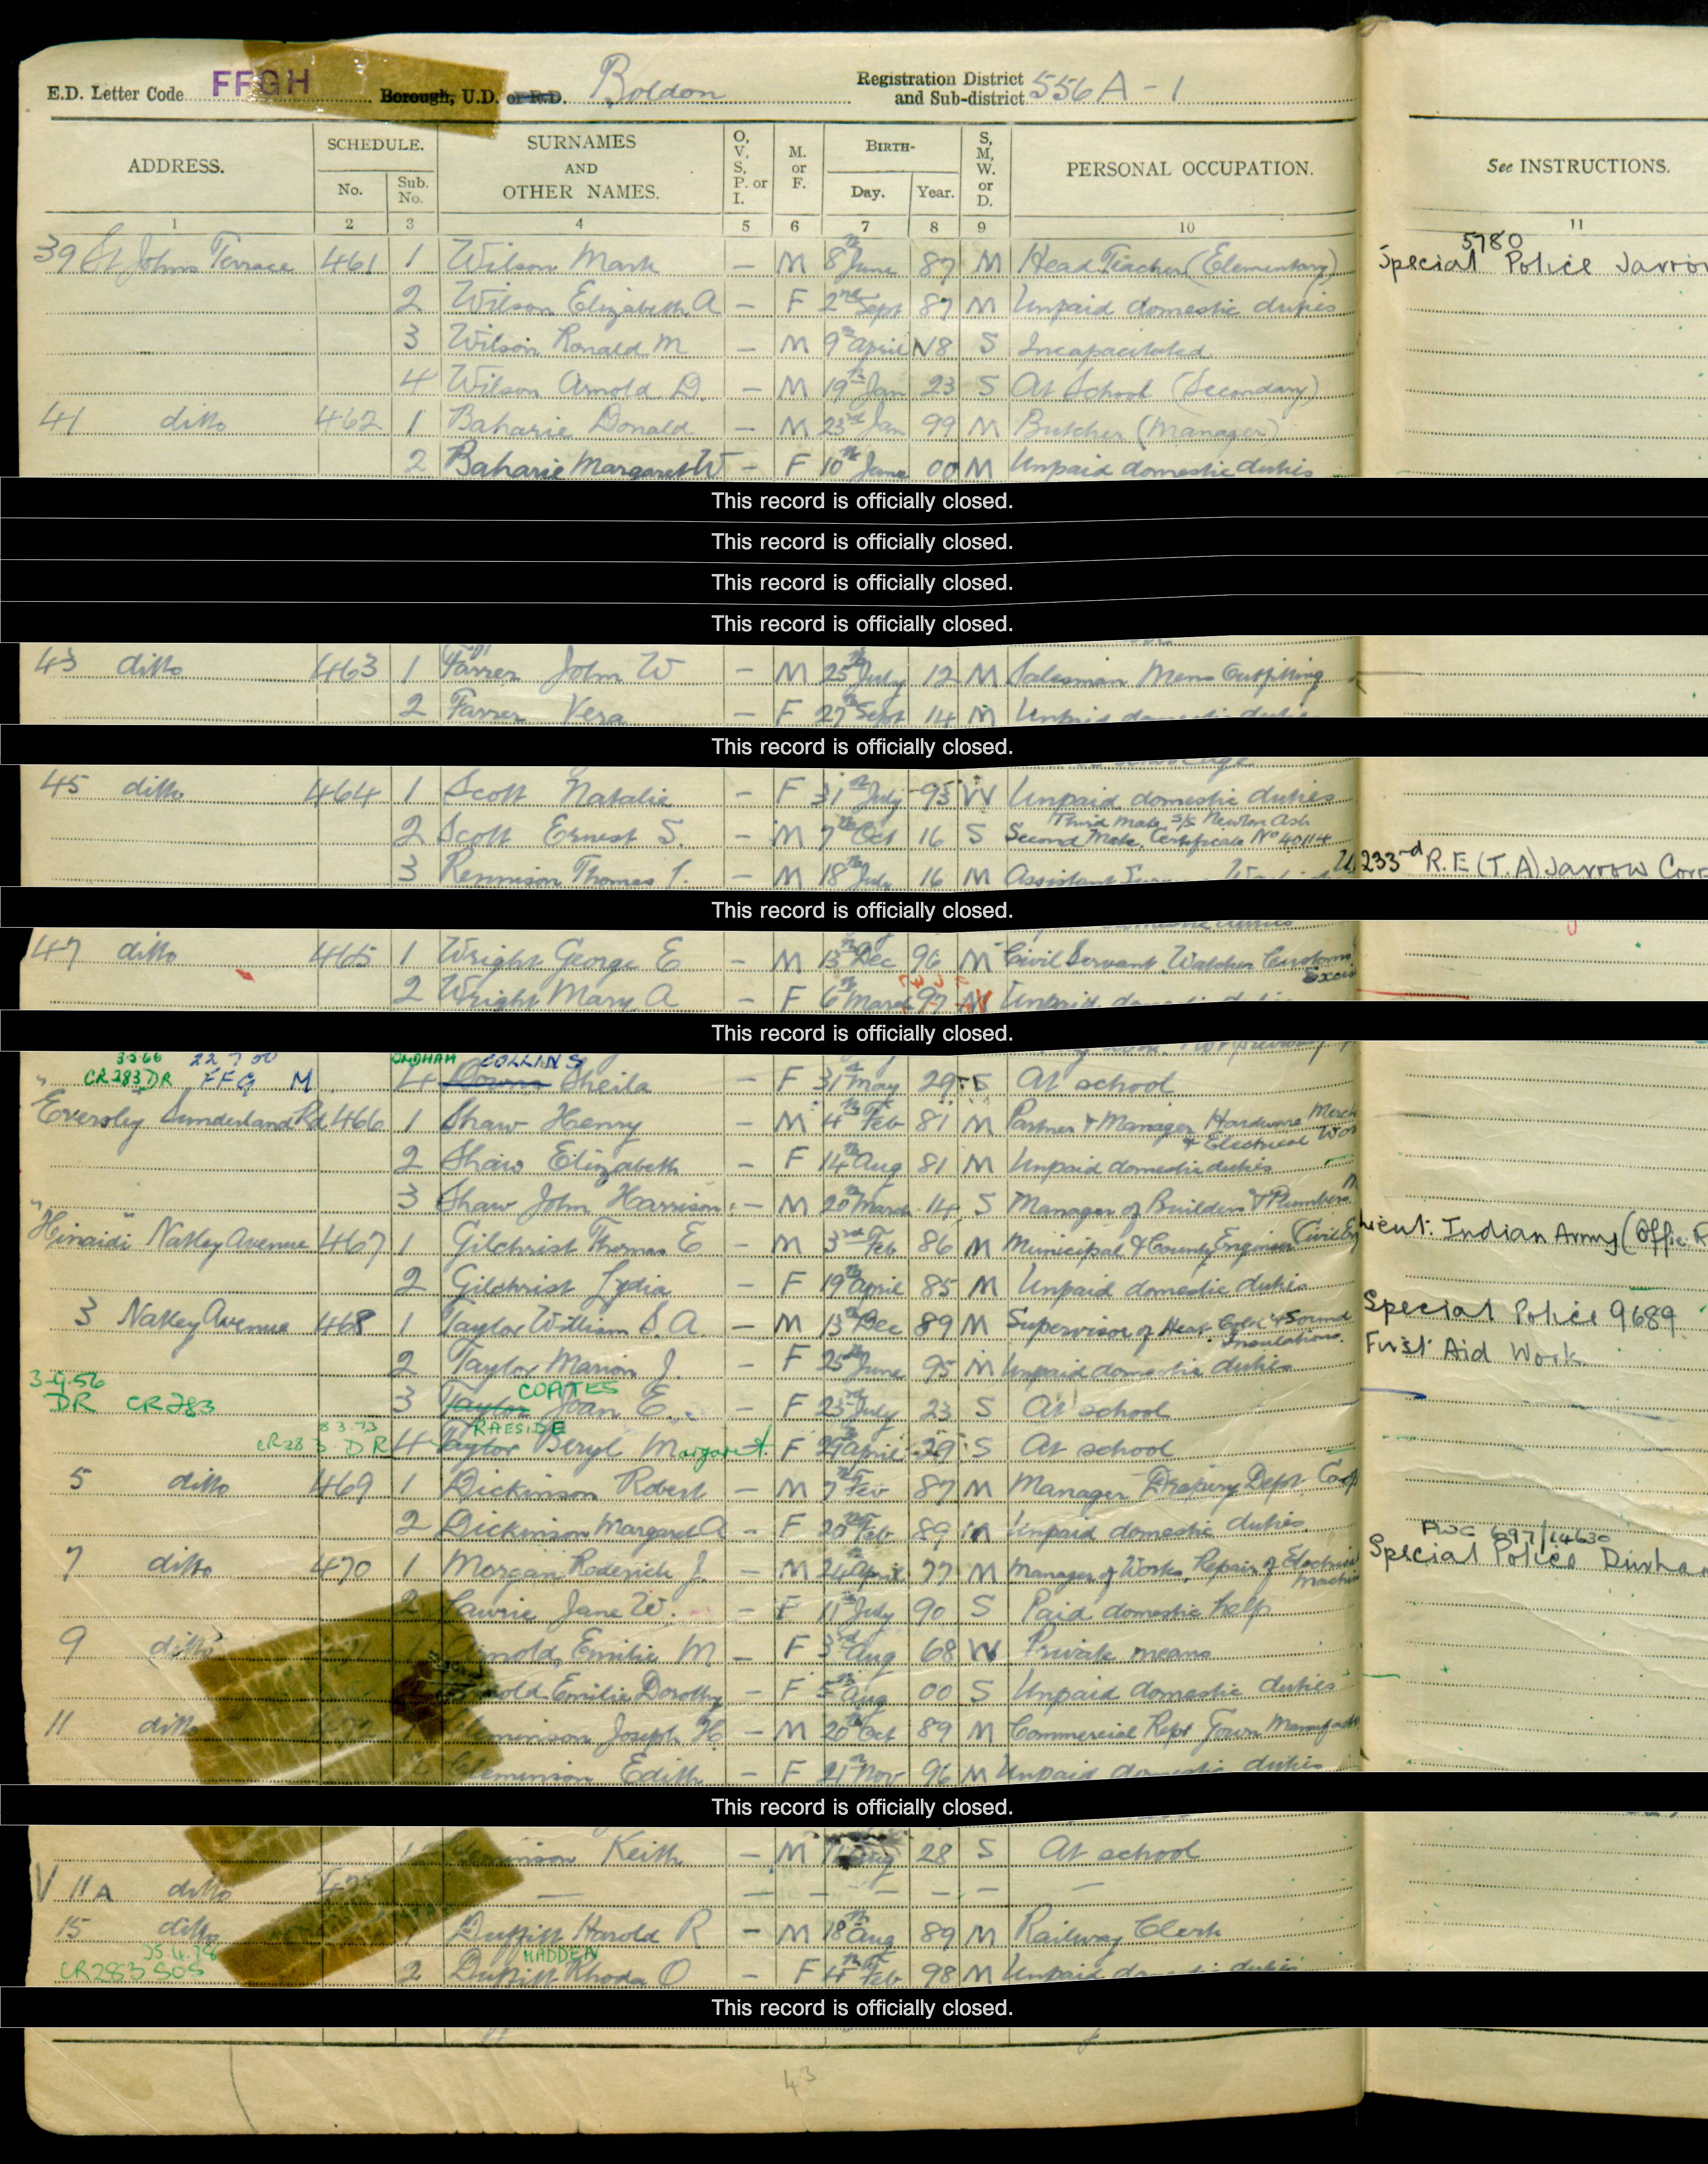 E.D. Letter Code FFGH Borough, U.D. or R.D. Boldon Registration District and Sub-district 556A - 1
ADDRESS. SCHEDULE. No. Sub. No. SURNAMES AND OTHER NAMES. O, V, S, P. or I. M. or F. BIRTH- Day. Year. S, M, W. or D. PERSONAL OCCUPATION. See INSTRUCTIONS.
1 2 3 4 5 6 7 8 9 10 11
39 St Johns Terrace 461 1 Wilson Mark – M 8th June 87 M Head Teacher (Elementary) 5780 Special Police
2 Wilson Elizabeth A – F 2nd Sept 87 M Unpaid domestic duties
3 Wilson Ronald M – M 9th April 18 S Incapacitated
4 Wilson Arnold D. – M 19th Jan 23 S At School (Secondary)
41 ditto 462 1 Baharie Donald – M 23rd Jan 99 M Butcher (Manager)
2 Baharie Margaret W – F 10th June 00 M Unpaid domestic duties
This record is officially closed.
This record is officially closed.
This record is officially closed.
This record is officially closed.
43 ditto 463 1 Farrer John W – M 25th July 12 M Salesman Mens Outfitting
2 Farrer Vera – F 27th Sept 14 M Unpaid domestic duties
This record is officially closed.
45 ditto 464 1 Scott Natalie – F 31st July 95 W Unpaid domestic duties
2 Scott Ernest S. – M 7th Oct 16 S Third Mate S/S Newton Ash Second Mate, Certificate No 40114
3 Rennison Thomas – M 18th July 16 M Assistant 233rd R.E (T.A) Jarrow
This record is officially closed.
47 ditto 465 1 Wright George E – M 13th Dec 96 M Civil Servant Watcher Customs Excise
2 Wright Mary A – F 6th March 97 M Unpaid domestic duties
This record is officially closed.
3566 22 7 50 OLDHAM COLLINS
" CR283 DR FFG M 4 Down Sheila – F 31st May 29 S At school
Eversley Sunderland Rd 466 1 Shaw Henry – M 4th Feb 81 M Partner & Manager Hardware & Electrical
2 Shaw Elizabeth – F 14th Aug 81 M Unpaid domestic duties
3 Shaw John Harrison – M 20th March 14 S Manager of Builders & Plumbers
"Hinaidi" Natley Avenue 467 1 Gilchrist Thomas E – M 3rd Feb 86 M Municipal & County Engineer Indian Army
2 Gilchrist Lydia – F 19th April 85 M Unpaid domestic duties
3 Natley Avenue 468 1 Taylor William S.A. – M 13th Dec 89 M Supervisor of Heat Cold & Sound Insulations. Special Police 9689
2 Taylor Marion J. – F 25th June 95 M Unpaid domestic duties First Aid Work
3.9.56 DR CR283 3 Taylor COATES Joan E. – F 23rd July 23 S At school
8 3.73 CR283 DR 4 Taylor RAESIDE Beryl Margaret. F 29th April 29 S At school
5 ditto 469 1 Dickinson Robert – M 7th Feb 87 M Manager Drapery Dept.
2 Dickinson Margaret A – F 20th Feb 89 M Unpaid domestic duties
7 ditto 470 1 Morgan Roderick J. – M 24th April 77 M Manager of Works, Repair of Electrical PWC 697/14630 Special Police
2 Lawrie Jane W. – F 11th July 90 S Paid domestic help
9 ditto 1 Arnold, Emilie M – F 3rd Aug 68 W Private means
Arnold Emilie Dorothy – F 5th Aug 00 S Unpaid domestic duties
11 ditto 1 Cleminson Joseph H – M 20th Oct 89 M Commercial Rept Gown
2 Cleminson Edith – F 21st Nov 96 M Unpaid domestic duties
This record is officially closed.
Cleminson Keith – M Aug 28 S At school
11A ditto – – – – – – – –
15 ditto Duffitt Harold R – M 18th Aug 89 M Railway Clerk
25.4.78 CR283 SOS 2 Duffitt HADDEN Rhoda O – F 4th Feb 98 M Unpaid domestic duties
This record is officially closed.
43